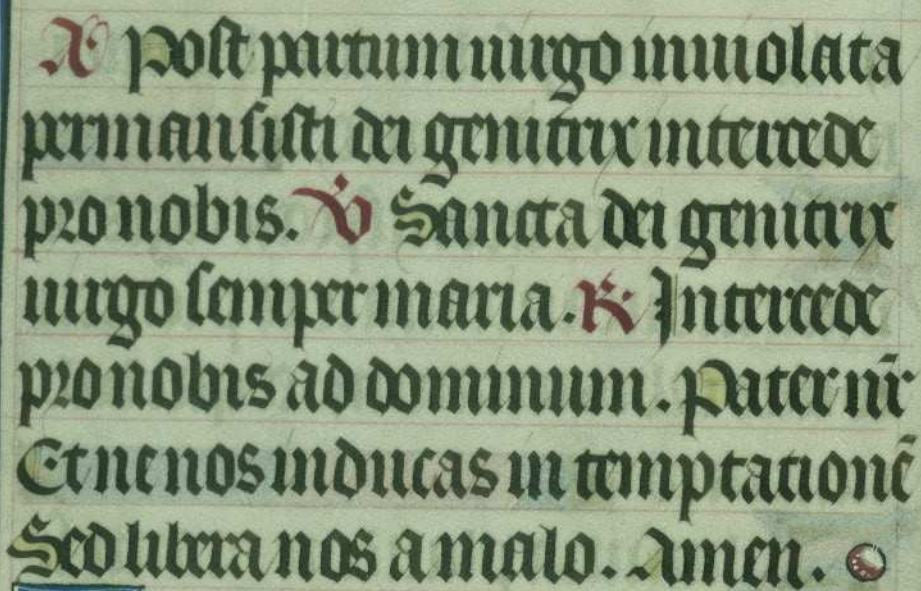 A Post partum uirgo inuiolata
permansisti dei genitrix intercede
pro nobis. ℣ Sancta dei genitrix
uirgo semper maria. ℟ Intercede
pro nobis ad dominum. Pater nr̄
Et ne nos inducas in temptationē
Sed libera nos a malo. Amen.